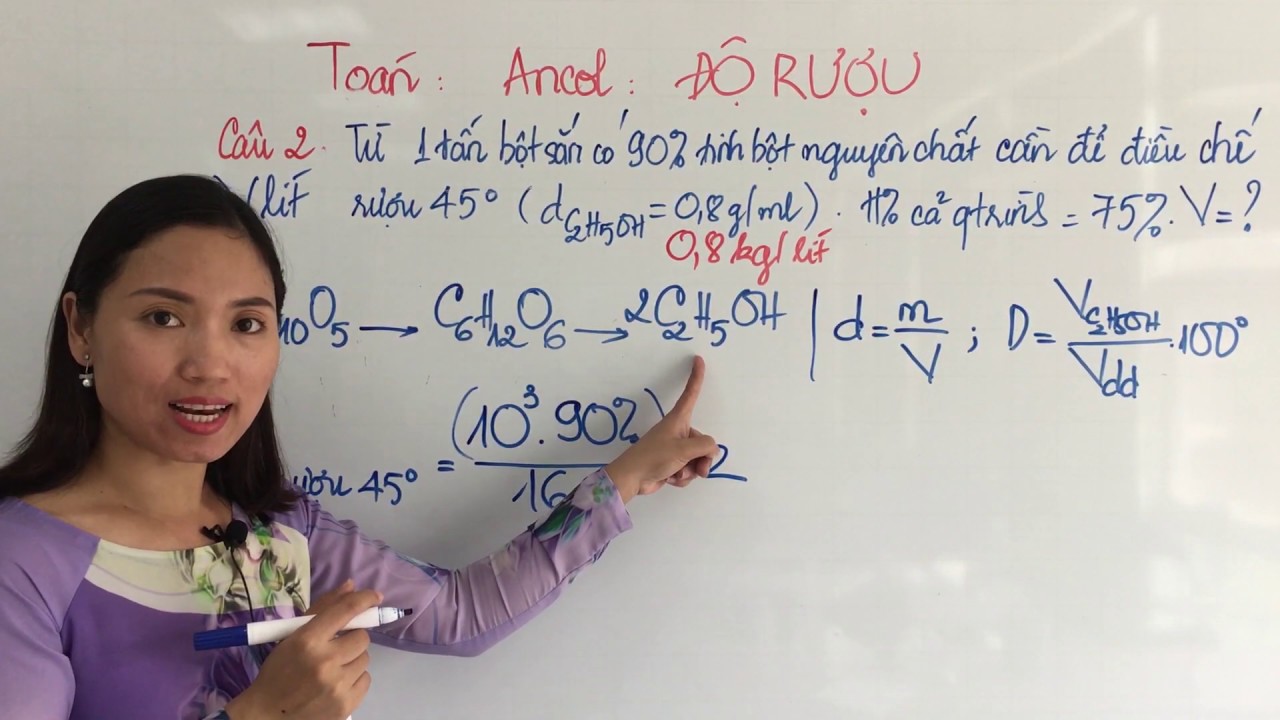 Toán: Ancol: ĐỘ RƯỢU
Câu 2. Từ 1 tấn bột sắn có 90% tinh bột nguyên chất cần để điều chế
lít rượu 45° (d C₂H₅OH = 0,8g/ml). H% cả qtrình = 75%. V = ?
0,8 kg/lít
10O₅ → C₆H₁₂O₆ → 2C₂H₅OH | d = m/V ; D = V C₂H₅OH / Vdd . 100°
rượu 45° = (10³.90%) / 16 2